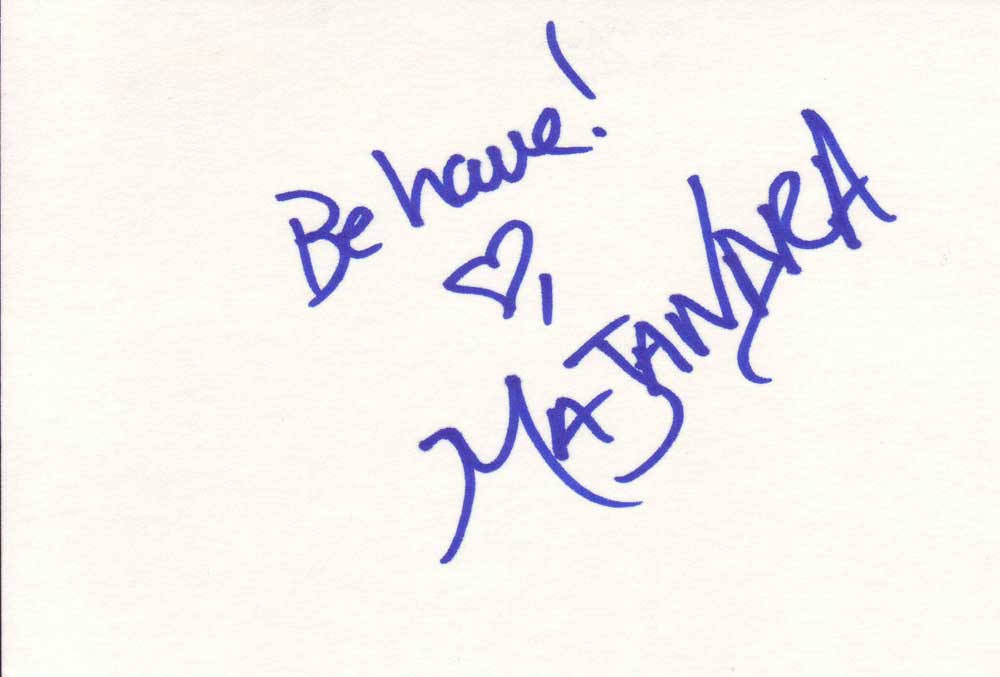 Behave!
♡,
MAJANDRA